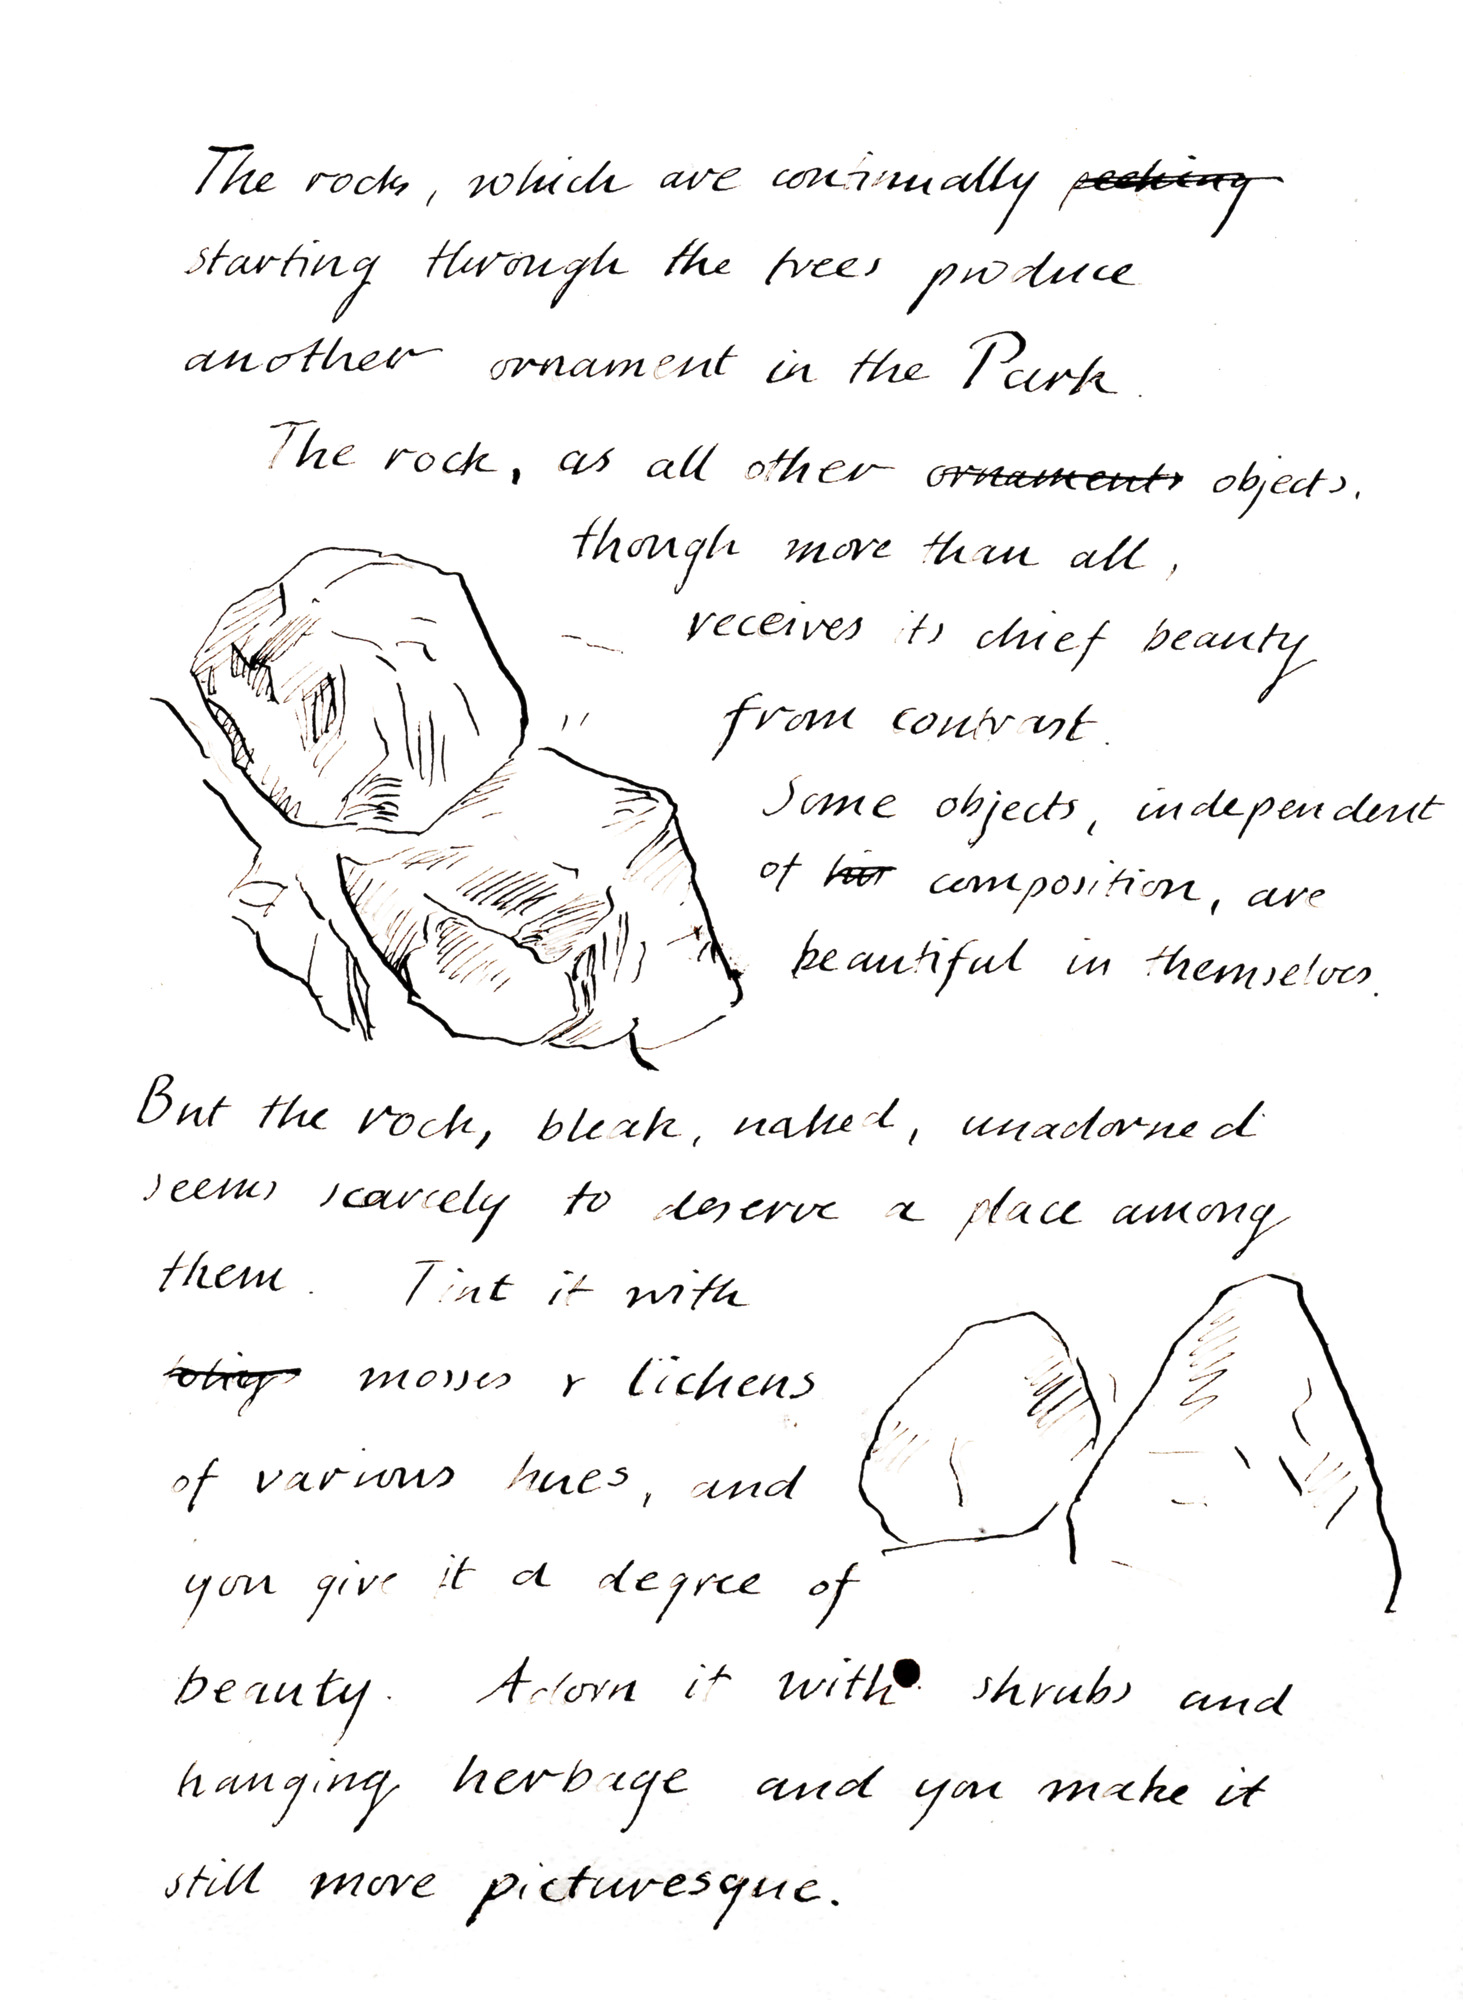 The rocks, which are continually peeking
starting through the trees produce
another ornament in the Park.
The rock, as all other ornaments objects,
though more than all,
receives its chief beauty
from contrast.
Some objects, independent
of composition, are
beautiful in themselves.
But the rock, bleak, naked, unadorned
seems scarcely to deserve a place among
them. Tint it with
mosses & lichens
of various hues, and
you give it a degree of
beauty. Adorn it with shrubs and
hanging herbage and you make it
still more picturesque.